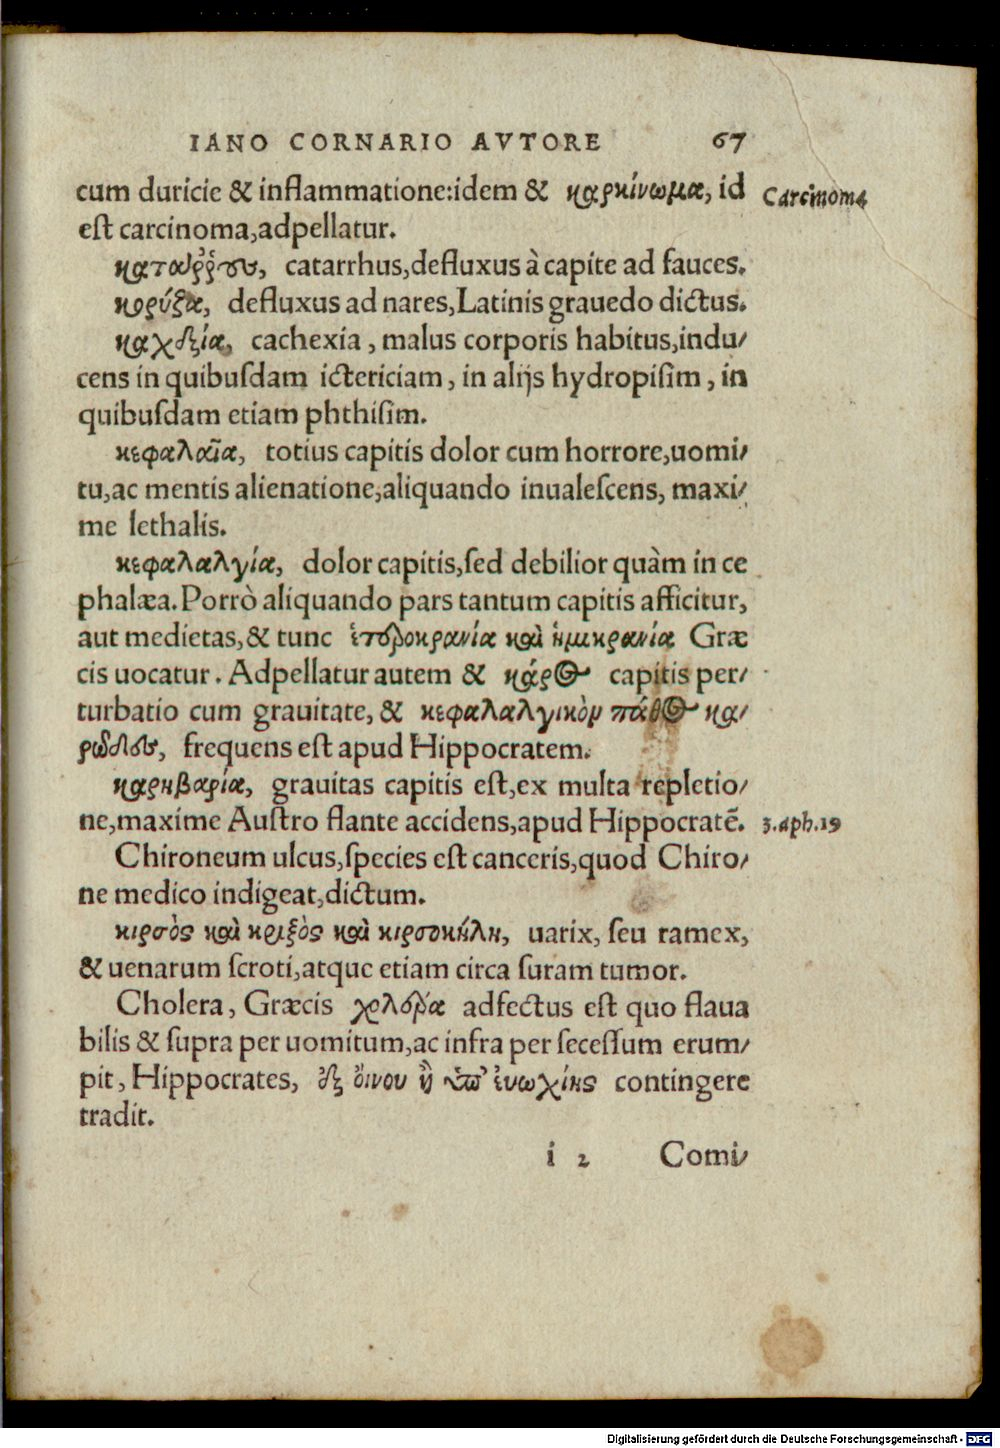 IANO CORNARIO AVTORE 67
cum duricie & inflammatione:idem & καρκίνωμα, id Carcinoma
eſt carcinoma,adpellatur.
κατάῤῥους, catarrhus,defluxus à capite ad fauces.
κορύζα, defluxus ad nares,Latinis grauedo dictus.
καχεξία, cachexia, malus corporis habitus,indu/
cens in quibuſdam ictericiam, in alijs hydropiſim, in
quibuſdam etiam phthiſim.
κεφαλαῖα, totius capitis dolor cum horrore,uomi/
tu,ac mentis alienatione,aliquando inualeſcens, maxi/
me lethalis.
κεφαλαλγία, dolor capitis,ſed debilior quàm in ce
phalæa.Porrò aliquando pars tantum capitis afficitur,
aut medietas,& tunc ἑτεροκρανία καὶ ἡμικρανία Græ
cis uocatur. Adpellatur autem & κάρος capitis per/
turbatio cum grauitate, & κεφαλαλγικὸν πάθος κα/
ρῶδες, frequens eſt apud Hippocratem.
καρηβαρία, grauitas capitis eſt,ex multa repletio/
ne,maxime Auſtro flante accidens,apud Hippocratē. 3.aph.19
Chironeum ulcus,ſpecies eſt canceris,quod Chiro/
ne medico indigeat,dictum.
κιρσὸς καὶ κριξὸς καὶ κιρσοκήλη, uarix, ſeu ramex,
& uenarum ſcroti,atque etiam circa ſuram tumor.
Cholera, Græcis χολέρα adfectus eſt quo flaua
bilis & ſupra per uomitum,ac infra per ſeceſſum erum/
pit, Hippocrates, ἐξ ὄινου ἢ ὑπ' ἐυωχίης contingere
tradit.
i 2 Comi/
Digitalisierung gefördert durch die Deutsche Forschungsgemeinschaft - DFG